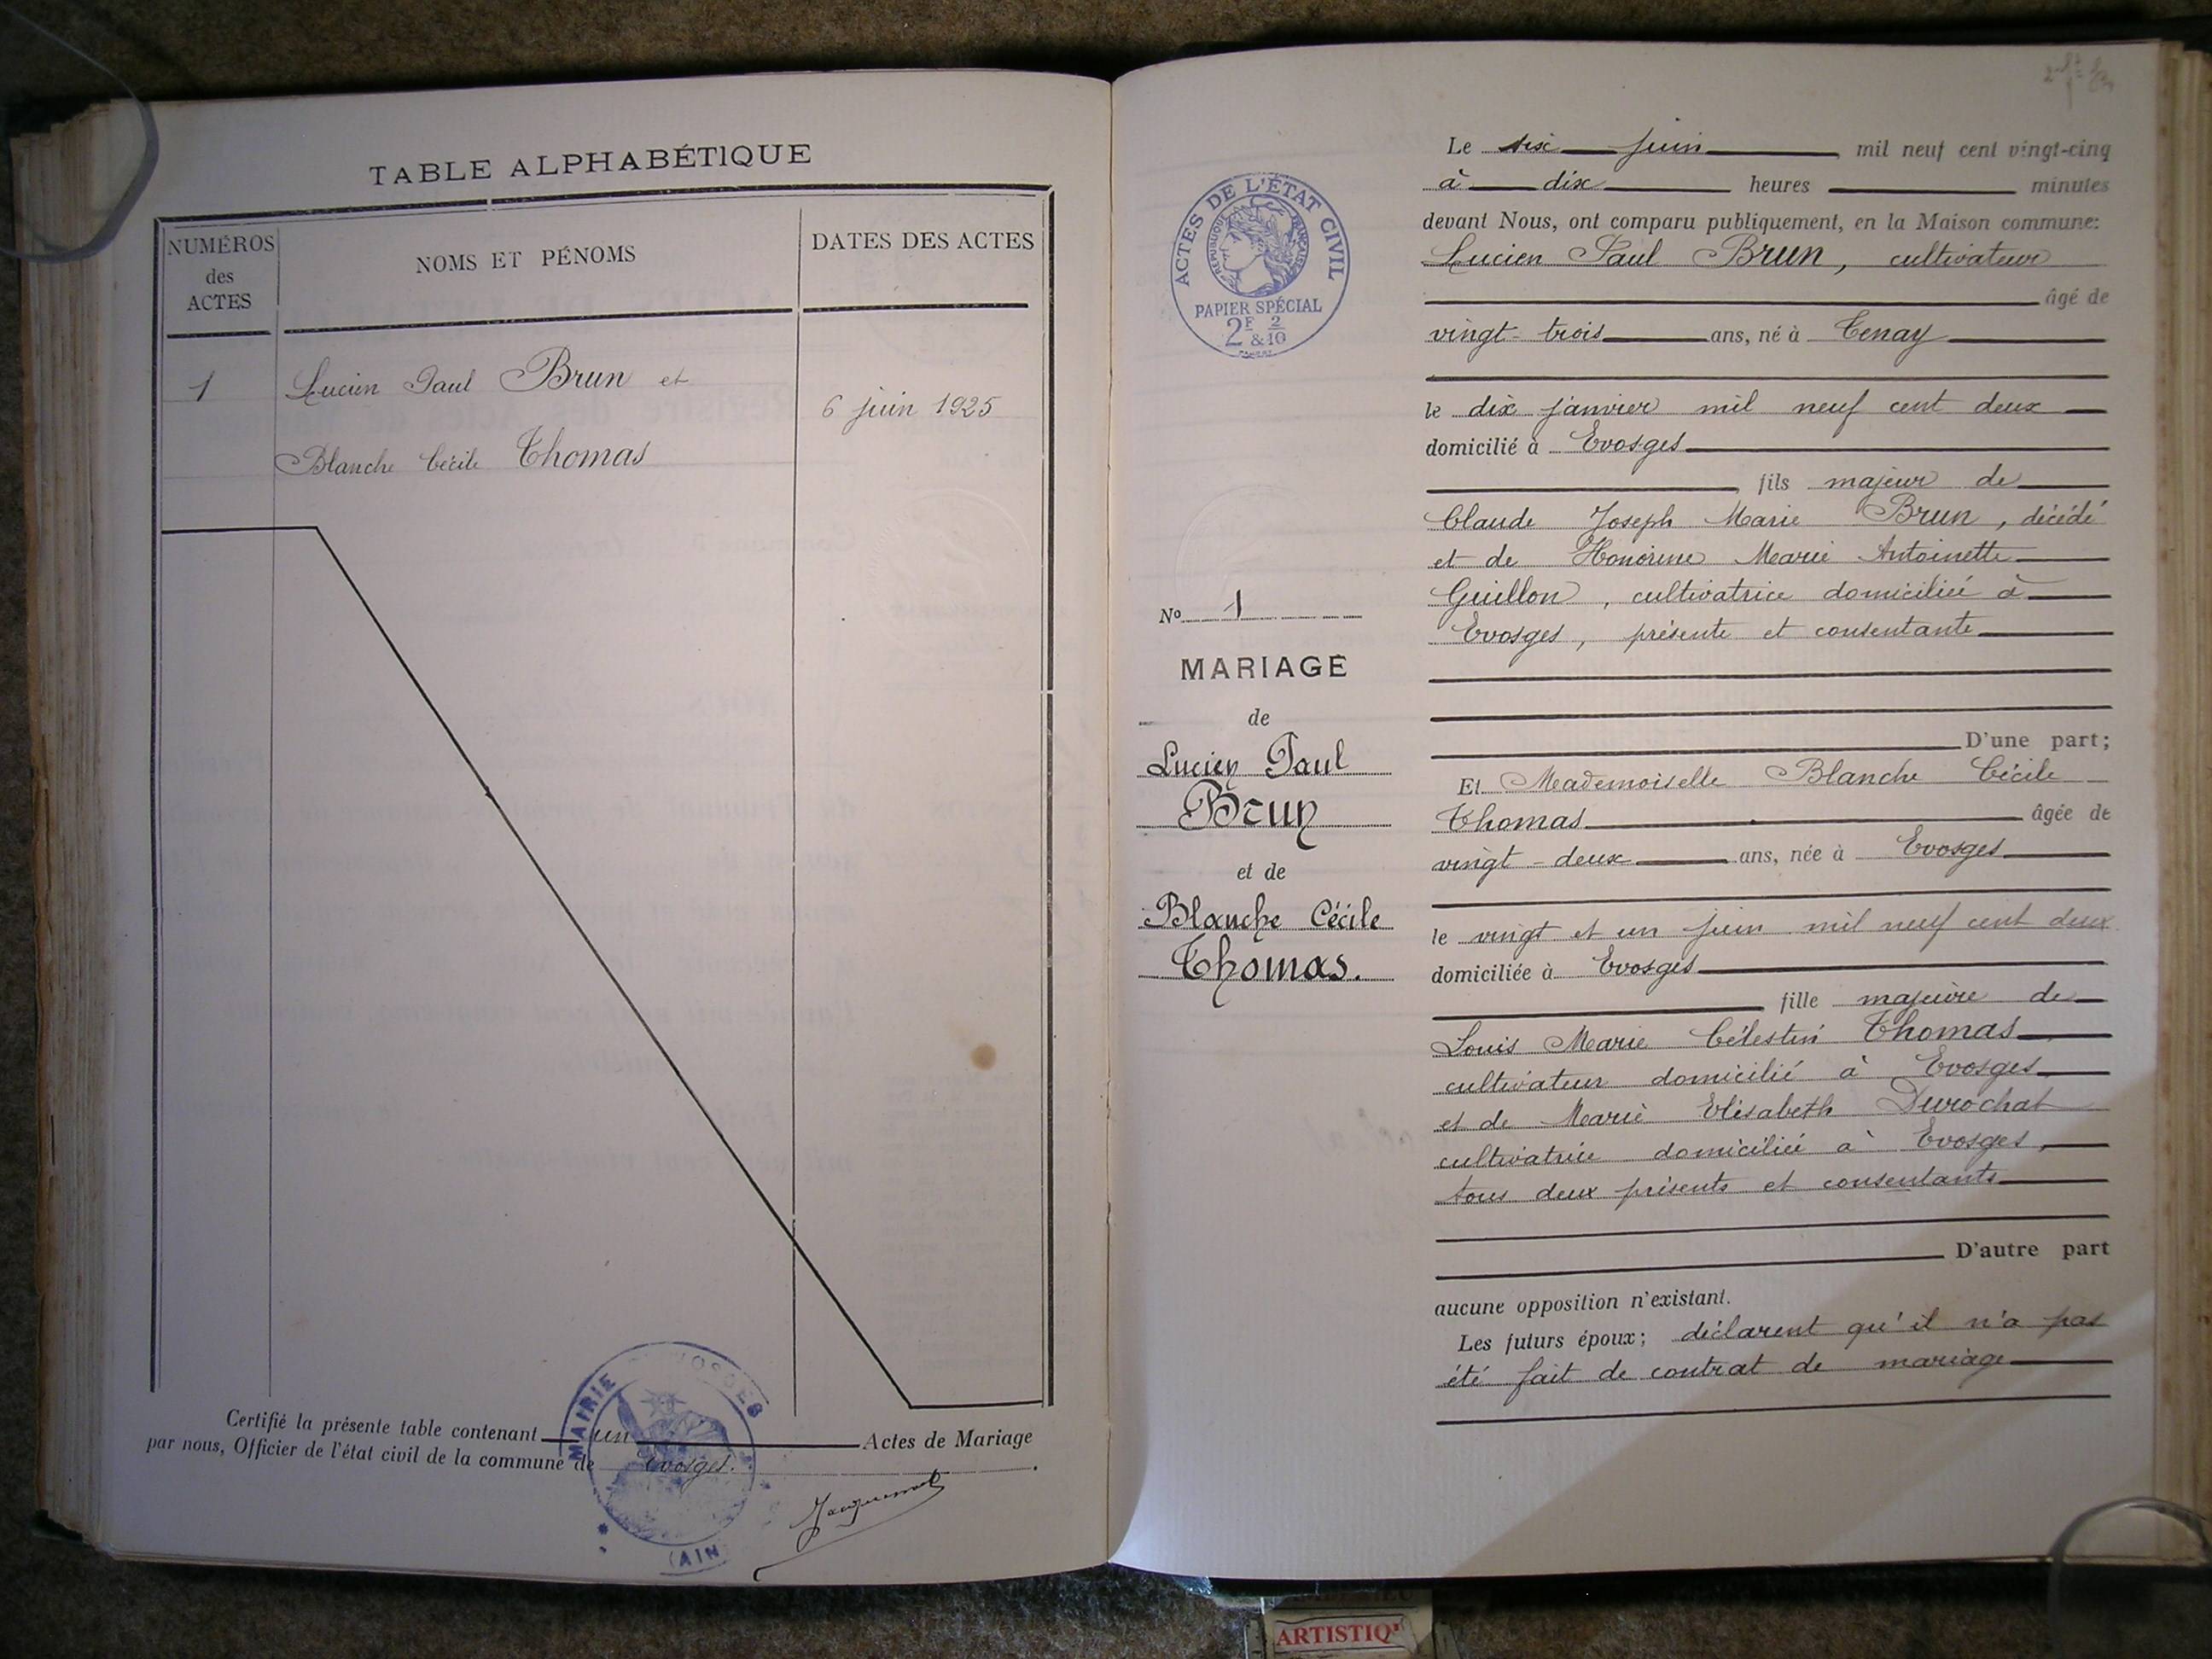 TABLE ALPHABÉTIQUE
NUMÉROS
des
ACTES
NOMS ET PÉNOMS
DATES DES ACTES
1
Lucien Paul Brun et
6 juin 1925
Blanche Cécile Thomas
Certifié la présente table contenant un Actes de Mariage
par nous, Officier de l'état civil de la commune de Evosges.
MAIRIE
(AIN
Jacquemet
ACTES DE L'ÉTAT CIVIL
REPUBLIQUE FRANÇAISE
PAPIER SPÉCIAL
2F & 2/10
No 1
MARIAGE
de
Lucien Paul
Brun
et de
Blanche Cécile
Thomas.
Le six juin mil neuf cent vingt-cinq
à dix heures minutes
devant Nous, ont comparu publiquement, en la Maison commune:
Lucien Paul Brun, cultivateur
âgé de
vingt-trois ans, né à Tenay
le dix janvier mil neuf cent deux
domicilié à Evosges
fils majeur de
Claude Joseph Marie Brun, décédé
et de Honorine Marie Antoinette
Guillon, cultivatrice domiciliée à
Evosges, présente et consentante
D'une part;
Et Mademoiselle Blanche Cécile
Thomas âgée de
vingt-deux ans, née à Evosges
le vingt et un juin mil neuf cent deux
domiciliée à Evosges
fille majeure de
Louis Marie Célestin Thomas
cultivateur domicilié à Evosges
et de Marie Elisabeth Durochat
cultivatrice domiciliée à Evosges,
tous deux présents et consentants
D'autre part
aucune opposition n'existant.
Les futurs époux; déclarent qu'il n'a pas
été fait de contrat de mariage
ARTISTIQ